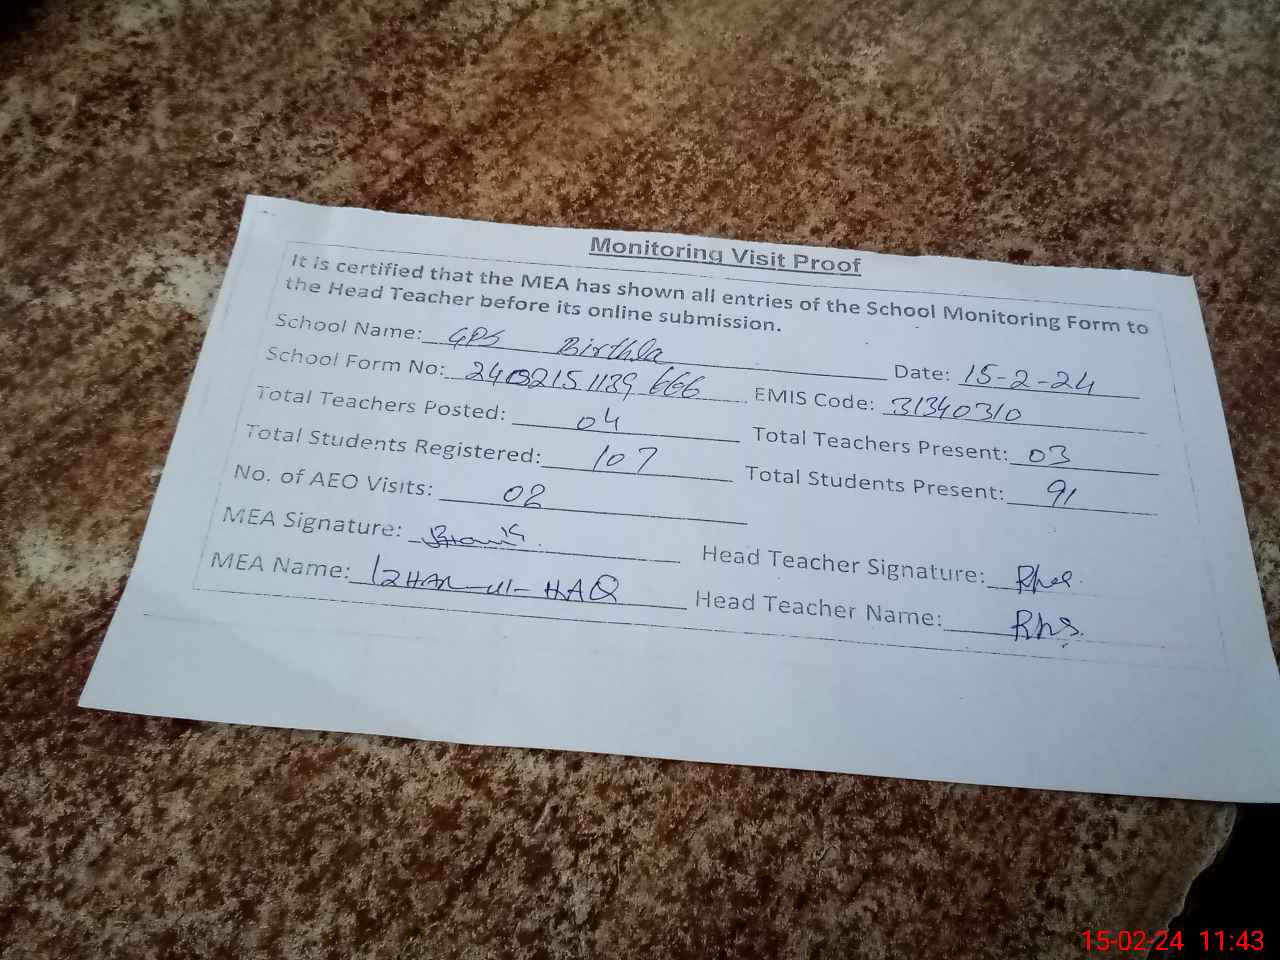 Monitoring Visit Proof
It is certified that the MEA has shown all entries of the School Monitoring Form to
the Head Teacher before its online submission.
School Name: GPS Birthla Date: 15-2-24
School Form No: EMIS Code: 31340310
Total Teachers Posted: 04 Total Teachers Present: 03
Total Students Registered: 107 Total Students Present: 91
No. of AEO Visits: 02
MEA Signature: Head Teacher Signature:
MEA Name: -ul-HAQ Head Teacher Name:
15-02-24 11:43